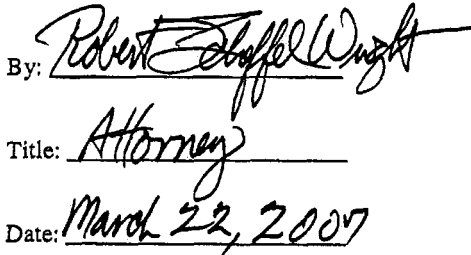 By: Robert Schoffel Wright
Title: Attorney
Date: March 22, 2007